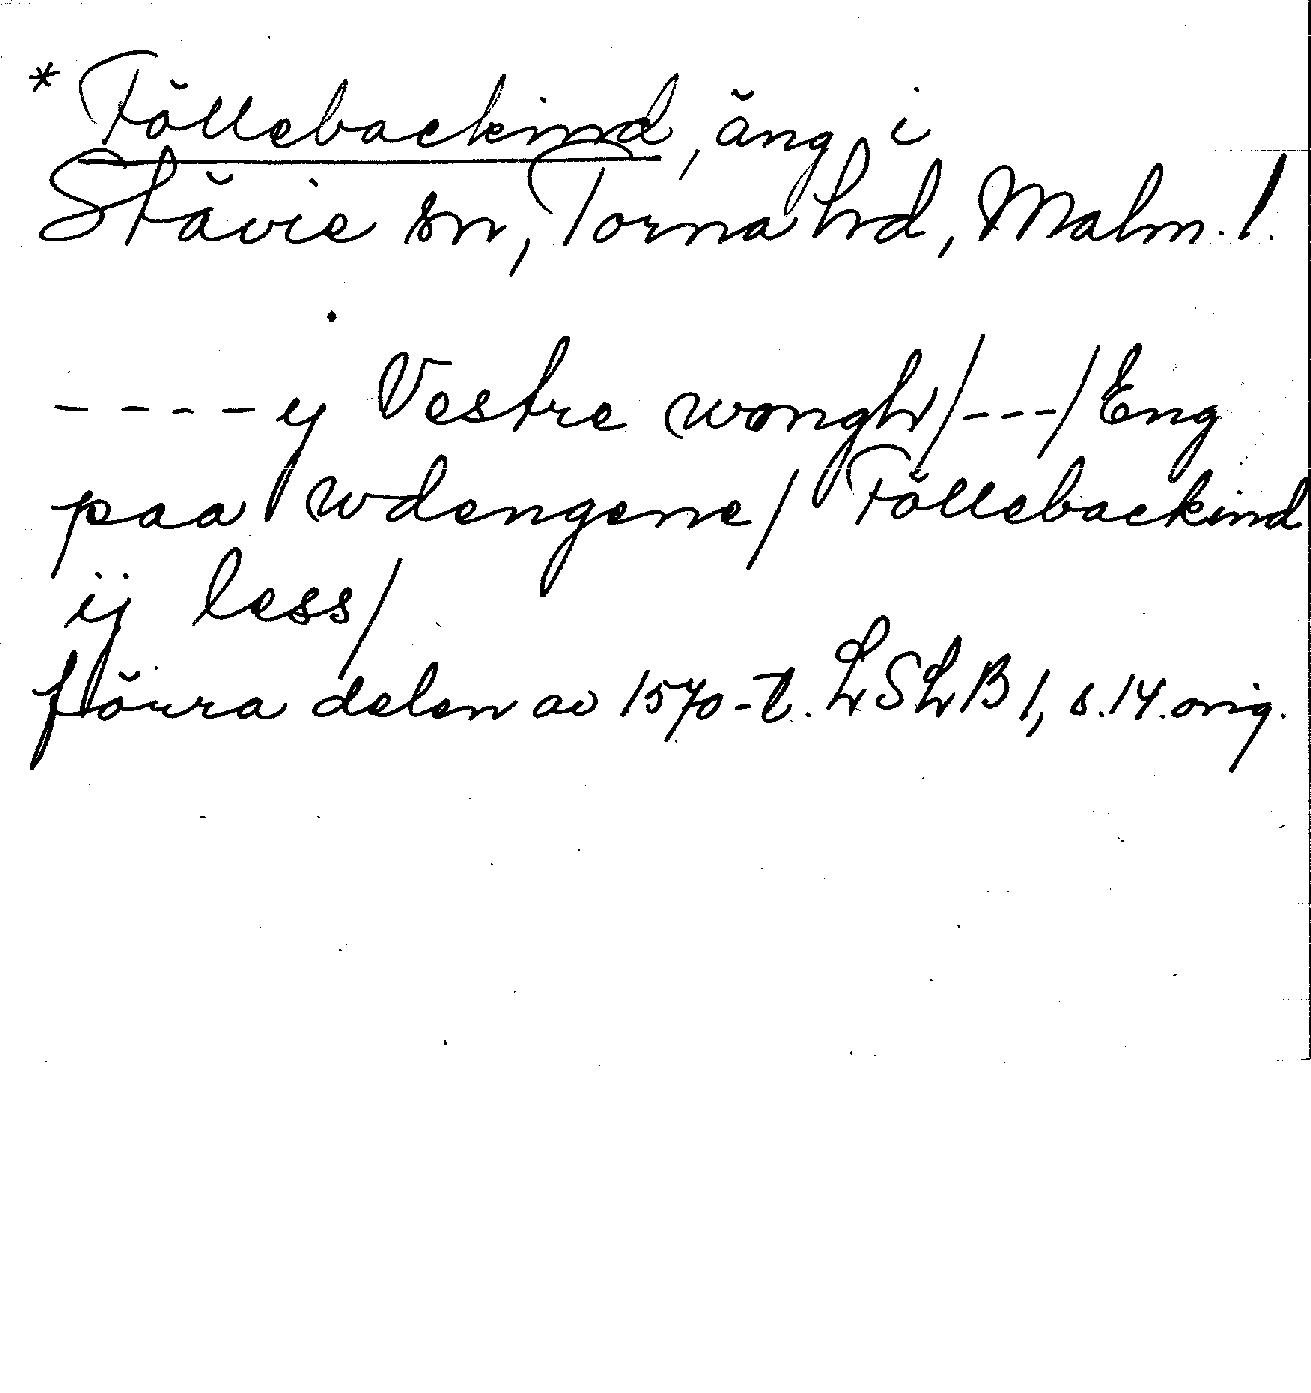 * Föllebackind, äng i
Stävie sn, Torna hd, Malm. l.
- - - - y Vestre wongh/---/Eng
paa wdengene/ Föllebackind
ij less/
förra delen av 1570-t. LSLB 1, s.14. orig.